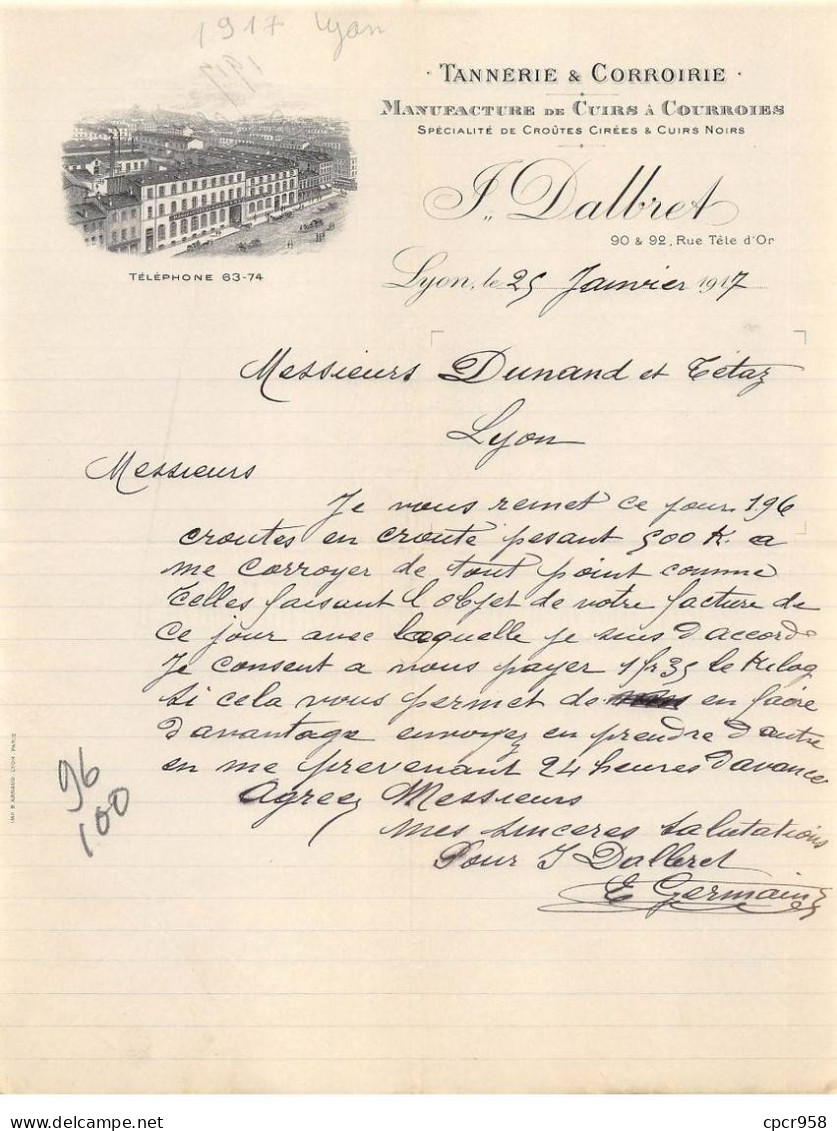 1917 Lyon
· TANNERIE & CORROIRIE ·
MANUFACTURE DE CUIRS À COURROIES
SPÉCIALITÉ DE CROÛTES CIRÉES & CUIRS NOIRS
J. Dalbret
90 & 92, Rue Tête d'Or
TÉLÉPHONE 63-74
Lyon, le 25 Janvier 1917
Messieurs Dunand et Tétaz
Lyon
Messieurs
Je vous remet ce jour 196
croutes en croute pesant 500 K. a
me corroyer de tout point comme
celles faisant l objet de votre facture de
ce jour avec laquelle je suis d'accord
Je consent a vous payer 1 fr 35 le Kilog
Si cela vous permet de en faire
d'avantage envoyez en prendre d'autre
en me prevenant 24 heures d'avance
Agreez Messieurs
mes sinceres salutations
Pour J Dalbret
E Germain
96
100
cpcr958